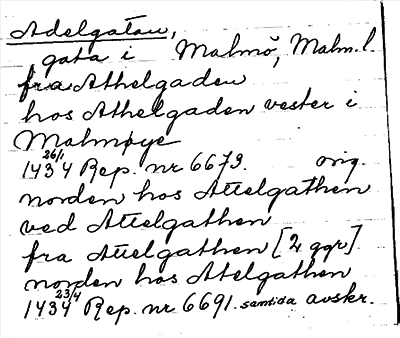 Adelgatan,
gata i Malmö, Malm. l.
fra Athelgaden
hos Athelgaden vester i
Malmøye
1434 26/1 Rep. nr 6679. orig.
norden hos Attelgathen
ved Attelgathen
fra Attelgathen [2 ggr]
norden hos Atelgathen
1434 23/4 Rep. nr 6691. samtida avskr.